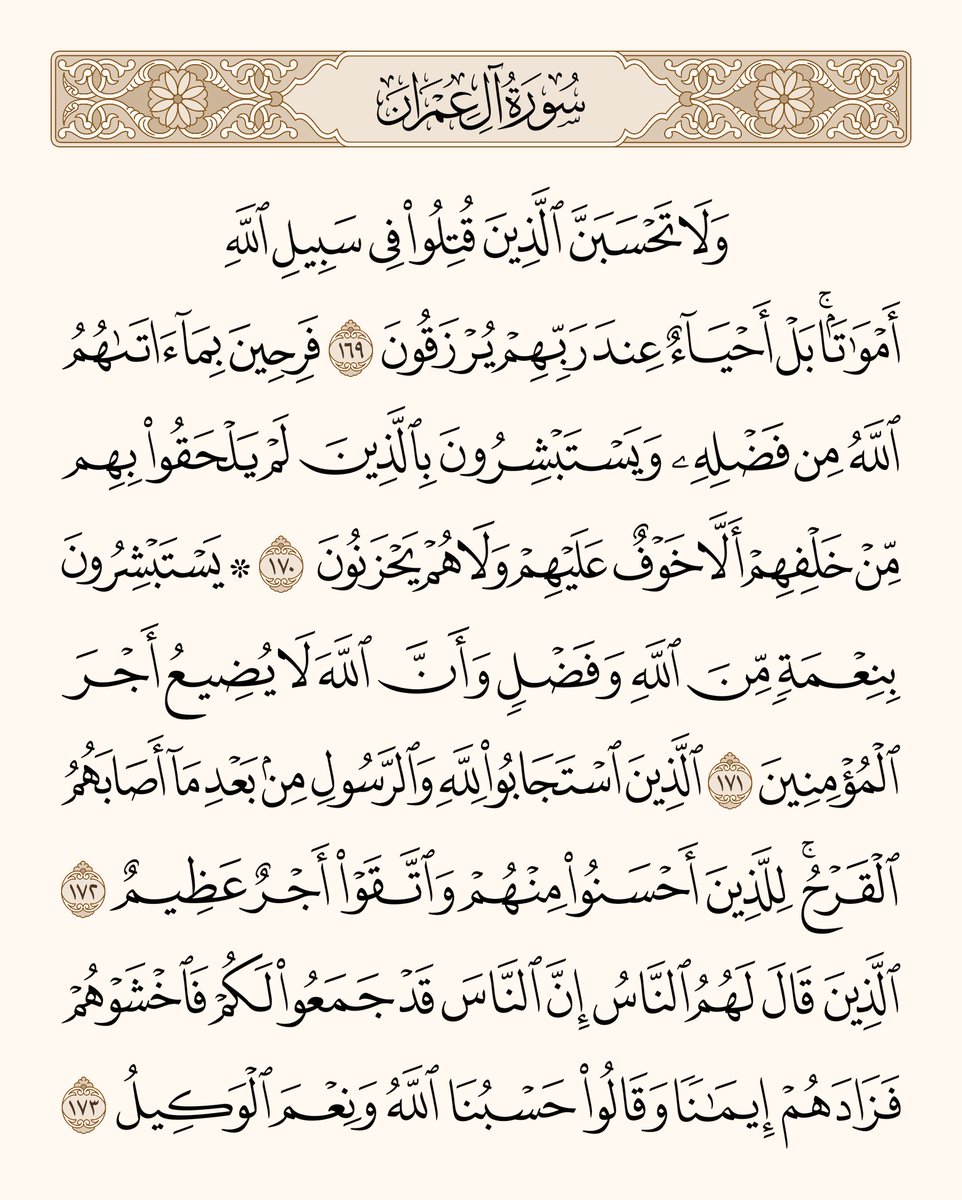 سُورَةُ آلِ عِمْرَانَ
وَلَا تَحْسَبَنَّ ٱلَّذِينَ قُتِلُوا۟ فِى سَبِيلِ ٱللَّهِ
أَمْوَٰتًۢا ۚ بَلْ أَحْيَآءٌ عِندَ رَبِّهِمْ يُرْزَقُونَ ١٦٩ فَرِحِينَ بِمَآ ءَاتَىٰهُمُ
ٱللَّهُ مِن فَضْلِهِۦ وَيَسْتَبْشِرُونَ بِٱلَّذِينَ لَمْ يَلْحَقُوا۟ بِهِم
مِّنْ خَلْفِهِمْ أَلَّا خَوْفٌ عَلَيْهِمْ وَلَا هُمْ يَحْزَنُونَ ١٧٠ * يَسْتَبْشِرُونَ
بِنِعْمَةٍ مِّنَ ٱللَّهِ وَفَضْلٍ وَأَنَّ ٱللَّهَ لَا يُضِيعُ أَجْرَ
ٱلْمُؤْمِنِينَ ١٧١ ٱلَّذِينَ ٱسْتَجَابُوا۟ لِلَّهِ وَٱلرَّسُولِ مِنۢ بَعْدِ مَآ أَصَابَهُمُ
ٱلْقَرْحُ ۚ لِلَّذِينَ أَحْسَنُوا۟ مِنْهُمْ وَٱتَّقَوْا۟ أَجْرٌ عَظِيمٌ ١٧٢
ٱلَّذِينَ قَالَ لَهُمُ ٱلنَّاسُ إِنَّ ٱلنَّاسَ قَدْ جَمَعُوا۟ لَكُمْ فَٱخْشَوْهُمْ
فَزَادَهُمْ إِيمَـٰنًا وَقَالُوا۟ حَسْبُنَا ٱللَّهُ وَنِعْمَ ٱلْوَكِيلُ ١٧٣